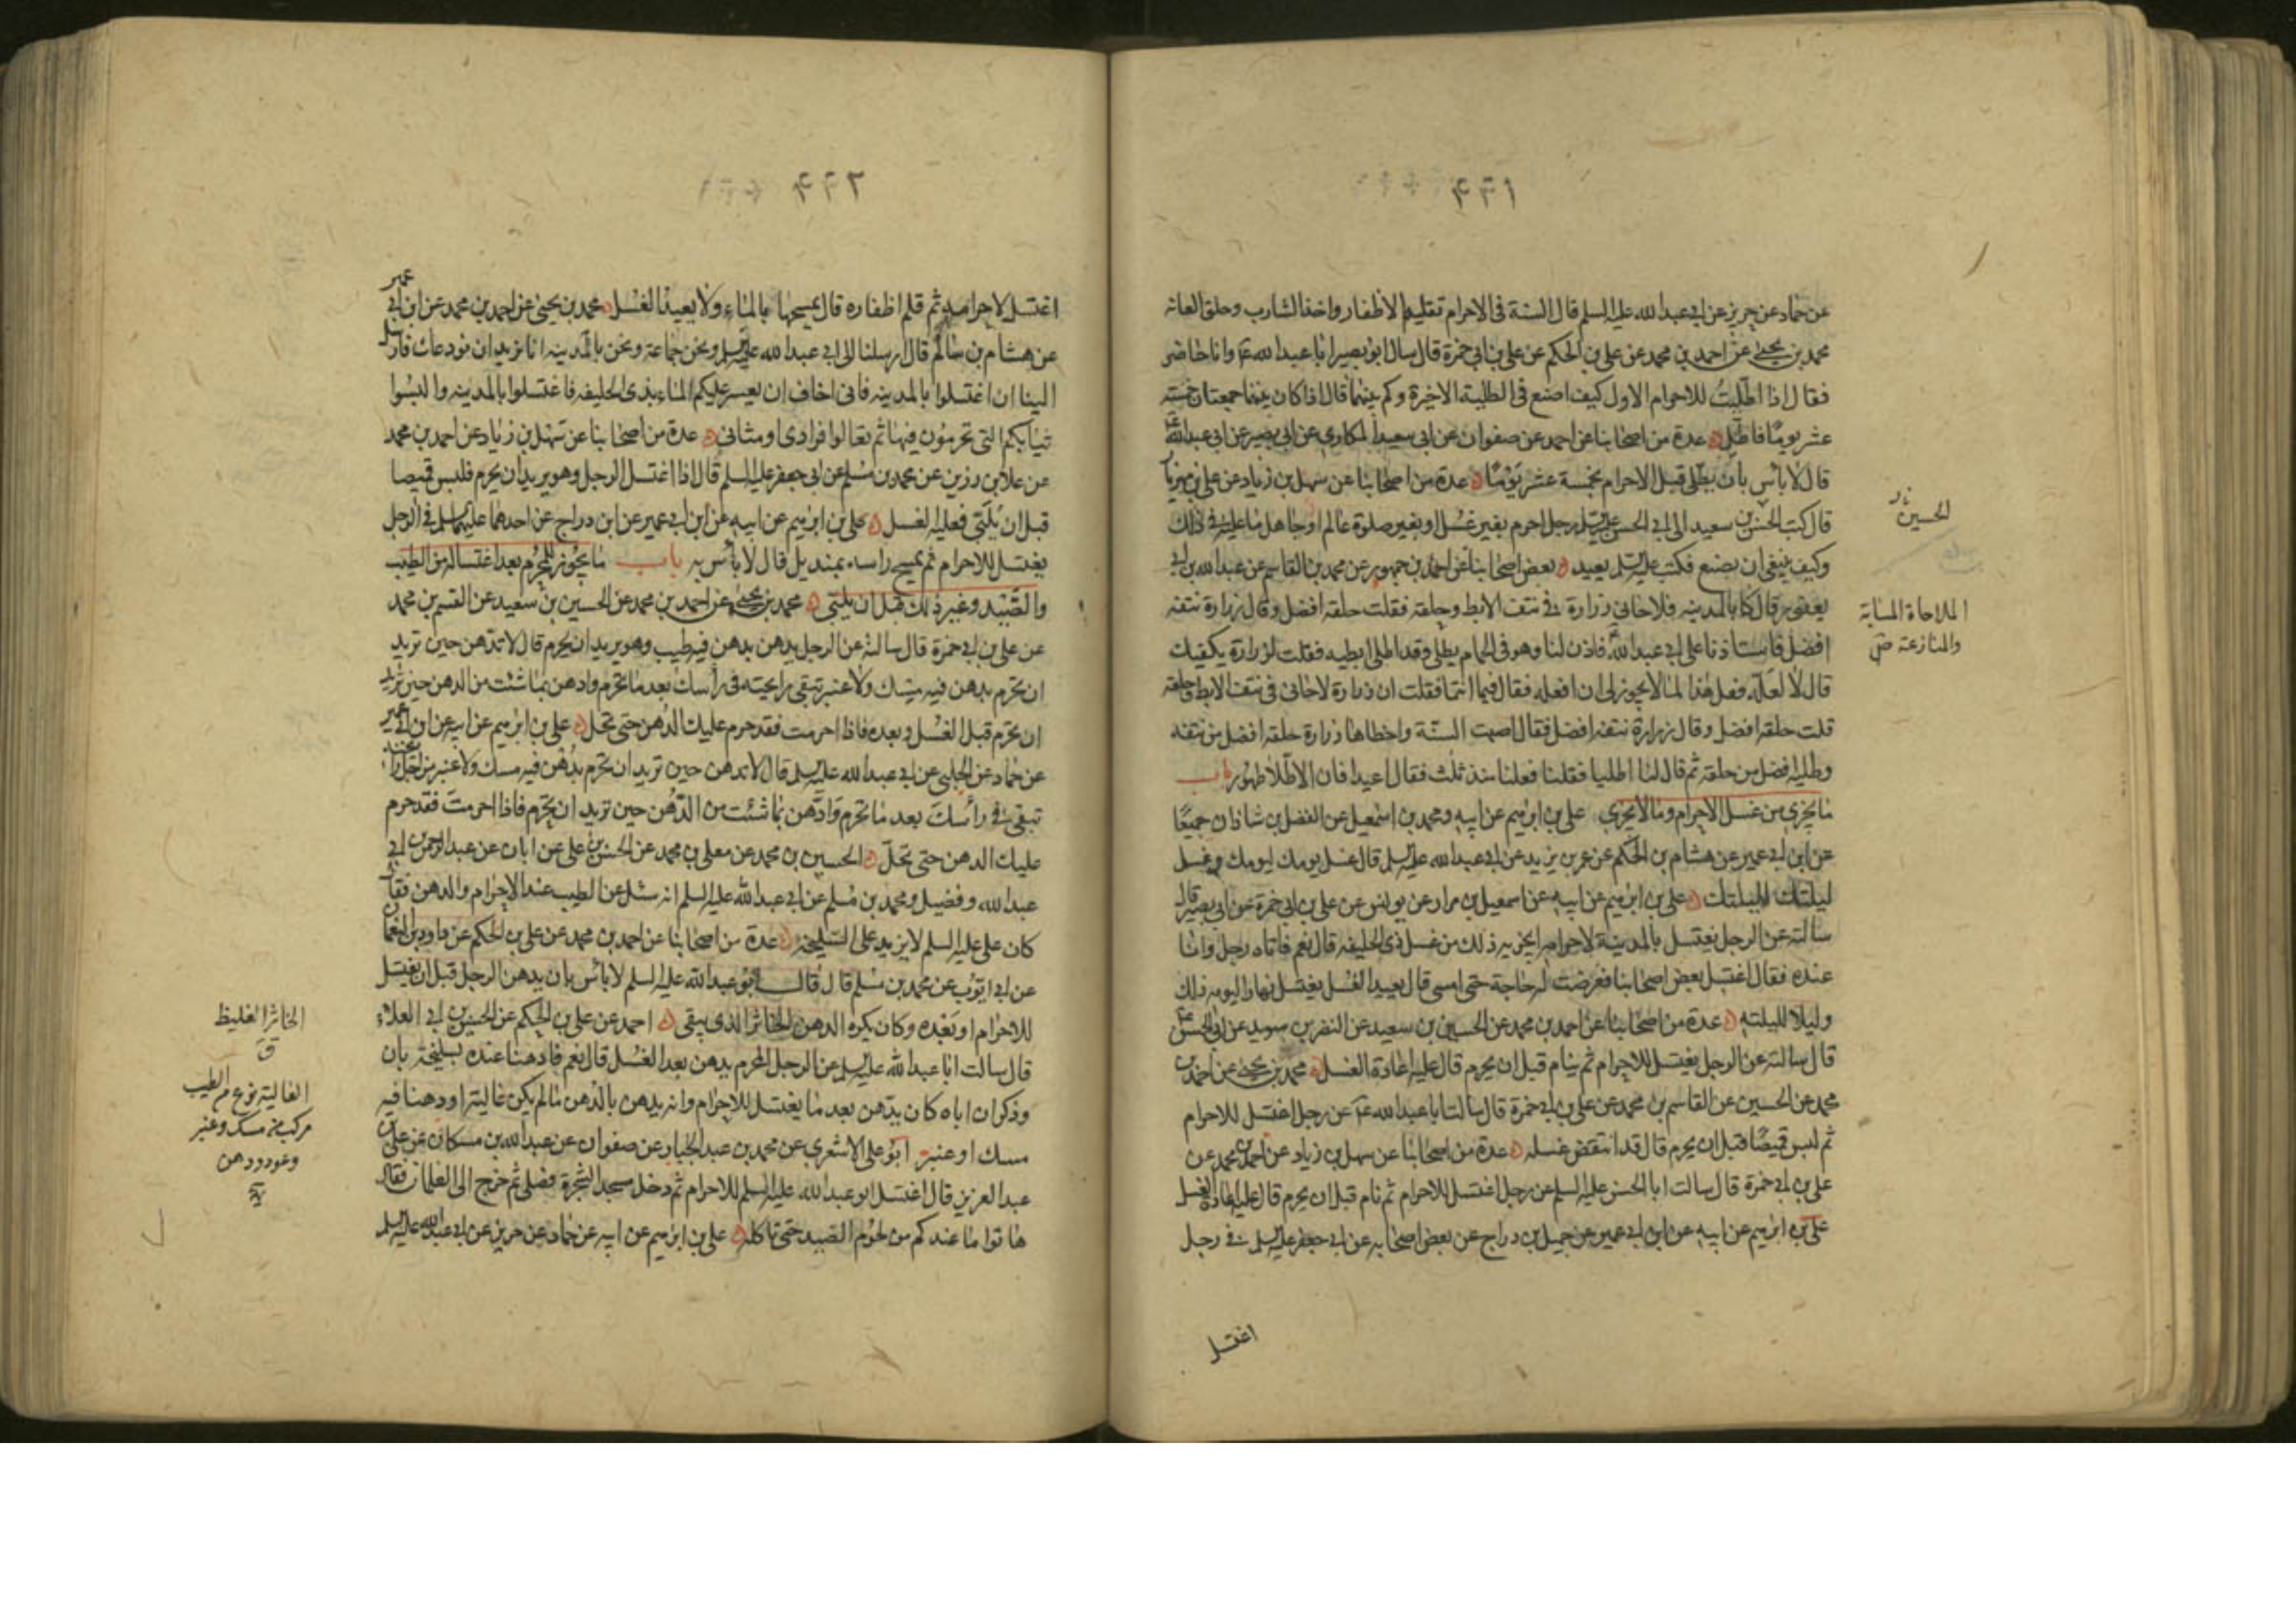 ٤٦١
عن حماد عن حريز عن ابي عبد الله عليه السلم قال السنة في الاحرام تقليم الاظفار واخذ الشارب وحلق العانه
محمد بن يحيى عن احمد بن محمد عن علي بن الحكم عن علي بن ابي حمزة قال سال ابو بصير ابا عبد الله ع وانا حاضر
فقال اذا اطليت للاحرام الاول كيف اصنع في الطلية الاخيرة وكم بينهما قال اذا كان بينهما جمعتان خمسة
عشر يوما فاطل عدة من اصحابنا عن احمد عن صفوان عن ابي سعيد المكاري عن ابي بصير عن ابي عبد الله ع
قال لا باس بان يطلي قبل الاحرام بخمسة عشر يوما عدة من اصحابنا عن سهل بن زياد عن علي بن مهزيار
قال كتب الحسن بن سعيد الى ابي الحسن عليه السلم رجل احرم بغير غسل او بغير صلوة عالم او جاهل ما عليه في ذلك
وكيف ينبغي ان يصنع فكتب عليه السلم يعيد بعض اصحابنا عن احمد بن جمهور عن محمد بن القاسم عن عبد الله بن ابي
يعفور قال كنا بالمدينه فلاحاني زرارة في نتف الابط وحلقه فقلت حلقه افضل وقال زرارة نتفه
افضل فاستاذنا على ابي عبد الله ع فاذن لنا وهو في الحمام يطلي وقد اطلى ابطيه فقلت لزرارة يكفيك
قال لا لعله فعل هذا لما لا يجوز لي ان افعله فقال فيما انتما فقلت ان زرارة لاحاني في نتف الابط وحلقه
قلت حلقه افضل وقال زرارة نتفه افضل فقال اصبت السنة واخطاها زرارة حلقه افضل من نتفه
وطليه افضل من حلقه ثم قال لنا اطليا فقلنا فعلنا منذ ثلث فقال اعيدا فان الاطلا طهور باب
ما يجزي من غسل الاحرام وما لا يجزي علي بن ابرهيم عن ابيه ومحمد بن اسمعيل عن الفضل بن شاذان جميعا
عن ابن ابي عمير عن هشام بن الحكم عن عمر بن يزيد عن ابي عبد الله عليه السلم قال غسل يومك ليومك وغسل
ليلتك لليلتك علي بن ابرهيم عن ابيه عن اسمعيل بن مرار عن يونس عن علي بن ابي حمزة عن ابي بصير قال
سالته عن الرجل يغتسل بالمدينة لاحرامه ايجزيه ذلك من غسل ذي الحليفه قال نعم فاتاه رجل وانا
عنده فقال اغتسل بعض اصحابنا فعرضت له حاجة حتى امسى قال يعيد الغسل يغتسل نهارا ليومه ذلك
وليلا لليلته عدة من اصحابنا عن احمد بن محمد عن الحسين بن سعيد عن النضر بن سويد عن ابي الحسن ع
قال سالته عن الرجل يغتسل للاحرام ثم ينام قبل ان يحرم قال عليه اعادة الغسل محمد بن يحيى عن احمد بن
محمد عن الحسين عن القاسم بن محمد عن علي بن ابي حمزة قال سالت ابا عبد الله ع عن رجل اغتسل للاحرام
ثم لبس قميصا قبل ان يحرم قال قد انتقض غسله عدة من اصحابنا عن سهل بن زياد عن احمد بن محمد عن
علي بن ابي حمزة قال سالت ابا الحسن عليه السلم عن رجل اغتسل للاحرام ثم نام قبل ان يحرم قال عليه اعادة الغسل
علي بن ابرهيم عن ابيه عن ابن ابي عمير عن جميل بن دراج عن بعض اصحابه عن ابي جعفر عليه السلم في رجل
اغتسل
الحسين
الملاحاة المسابة
والمنازعة
٤٦٢
اغتسل لاحرامه ثم قلم اظفاره قال يمسحها بالماء ولا يعيد الغسل محمد بن يحيى عن احمد بن محمد عن ابن ابي عمير
عن هشام بن سالم قال ارسلنا الى ابي عبد الله عليه السلم ونحن جماعة ونحن بالمدينه انا نريد ان نودعك فارسل
الينا ان اغتسلوا بالمدينه فاني اخاف ان يعسر عليكم الماء بذي الحليفه فاغتسلوا بالمدينه والبسوا
ثيابكم التي تحرمون فيها ثم تعالوا فرادى او مثاني عدة من اصحابنا عن سهل بن زياد عن احمد بن محمد
عن علا بن رزين عن محمد بن مسلم عن ابي جعفر عليه السلم قال اذا اغتسل الرجل وهو يريد ان يحرم فلبس قميصا
قبل ان يلبي فعليه الغسل علي بن ابرهيم عن ابيه عن ابن ابي عمير عن ابن دراج عن احدهما عليهما السلم في الرجل
يغتسل للاحرام ثم يمسح راسه بمنديل قال لا باس به باب ما يجوز للمحرم بعد اغتساله من الطيب
والصيد وغير ذلك قبل ان يلبي محمد بن يحيى عن احمد بن محمد عن الحسين بن سعيد عن القسم بن محمد
عن علي بن ابي حمزة قال سالته عن الرجل يدهن بدهن فيه طيب وهو يريد ان يحرم قال لا تدهن حين تريد
ان تحرم بدهن فيه مسك ولا عنبر تبقى رايحته في رأسك بعد ما تحرم وادهن بما شئت من الدهن حين تريد
ان تحرم قبل الغسل وبعده فاذا احرمت فقد حرم عليك الدهن حتى تحل علي بن ابرهيم عن ابيه عن ابن ابي عمير
عن حماد عن الحلبي عن ابي عبد الله عليه السلم قال لا تدهن حين تريد ان تحرم بدهن فيه مسك ولا عنبر من اجل رائحته
تبقى في رأسك بعد ما تحرم وادهن بما شئت من الدهن حين تريد ان تحرم فاذا احرمت فقد حرم
عليك الدهن حتى تحل الحسين بن محمد عن معلى بن محمد عن الحسن بن علي عن ابان عن عبد الرحمن بن ابي
عبد الله وفضيل ومحمد بن مسلم عن ابي عبد الله عليه السلم انه سئل عن الطيب عند الاحرام والدهن فقال
كان علي عليه السلم لا يزيد على السليخة عدة من اصحابنا عن احمد بن محمد عن علي بن الحكم عن داود بن النعمان
عن ابي ايوب عن محمد بن مسلم قال قال ابو عبد الله عليه السلم لا باس بان يدهن الرجل قبل ان يغتسل
للاحرام او بعده وكان يكره الدهن الخاثر الذي يبقى احمد عن علي بن الحكم عن الحسين بن ابي العلاء
قال سالت ابا عبد الله عليه السلم عن الرجل المحرم يدهن بعد الغسل قال نعم فادهنا عنده بسليخة بان
وذكر ان اباه كان يدهن بعد ما يغتسل للاحرام وانه يدهن بالدهن ما لم يكن غالية او دهنا فيه
مسك او عنبر ابو علي الاشعري عن محمد بن عبد الجبار عن صفوان عن عبد الله بن مسكان عن علي بن
عبد العزيز قال اغتسل ابو عبد الله عليه السلم للاحرام ثم دخل مسجد الشجرة فصلى ثم خرج الى الغلمان فقال
هاتوا ما عندكم من لحوم الصيد حتى ناكله علي بن ابرهيم عن ابيه عن حماد عن حريز عن ابي عبد الله عليه السلم
الخاثر الغليظ
ق
الغالية نوع من الطيب
مركب من مسك وعنبر
وعود ودهن